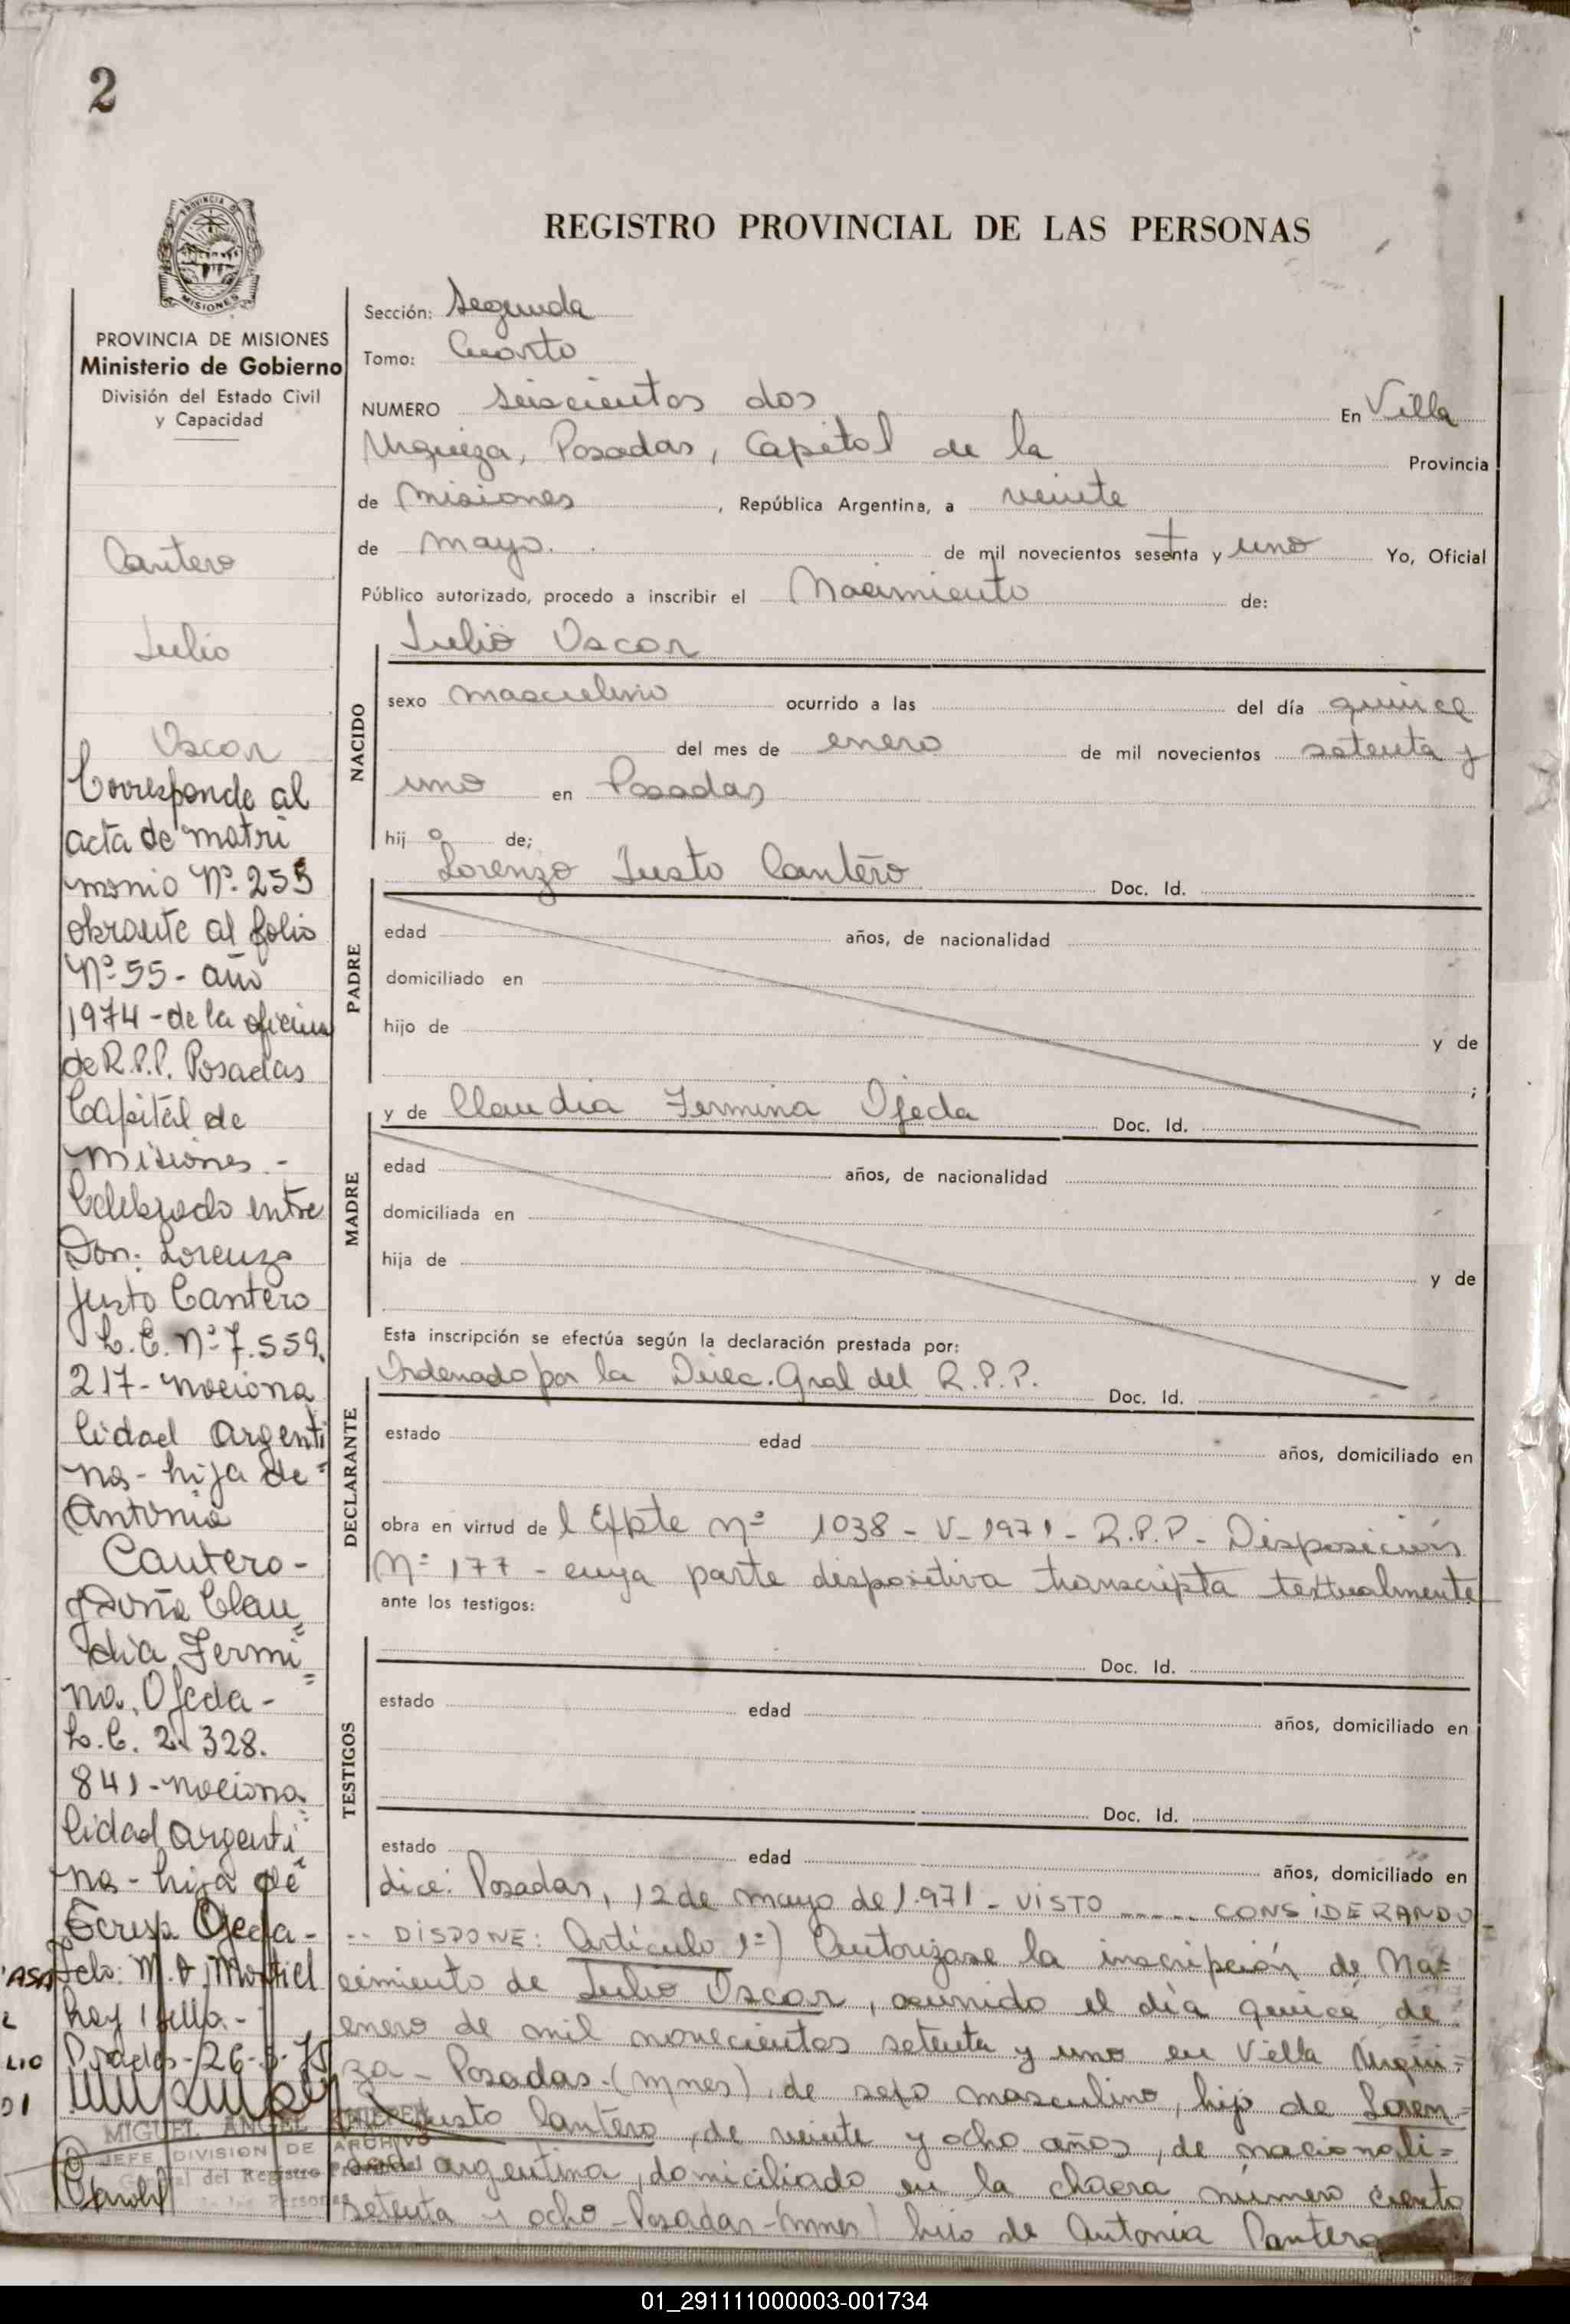 2
REGISTRO PROVINCIAL DE LAS PERSONAS
PROVINCIA
MISIONES
PROVINCIA DE MISIONES
Ministerio de Gobierno
División del Estado Civil
y Capacidad
Cantero
Julio
Oscar
Corresponde al
acta de matri
monio Nº 255
obrante al folio
Nº 55 - año
1974 - de la oficina
de R.P.P. Posadas
Capital de
Misiones -
Celebrado entre
Don: Lorenzo
Justo Cantero
L.E. Nº 7.559.
217 - naciona
lidad argenti
na - hija de =
Antonia
Cantero -
y Doña Clau
dia Fermi =
na, Ojeda -
L.C. 2. 328.
841 - naciona
lidad argenti
na - hija de
Ojeda -
Fdo: M. A. Montiel
hay 1 sello. -
Posadas - 26-5-75
MIGUEL ANGEL
JEFE DIVISION DE ARCHIVO
del Registro
Sección: Segunda
Tomo: Cuarto
NUMERO seiscientos dos En Villa
Urquiza, Posadas, Capital de la Provincia
de Misiones , República Argentina, a veinte
de mayo. de mil novecientos sesenta y uno Yo, Oficial
Público autorizado, procedo a inscribir el Nacimiento de:
Julio Oscar
NACIDO
sexo masculino ocurrido a las del día quince
del mes de enero de mil novecientos setenta y
uno en Posadas
hij o de;
Lorenzo Justo Cantero Doc. Id.
PADRE
edad años, de nacionalidad
domiciliado en
hijo de y de
;
y de Claudia Fermina Ojeda Doc. Id.
MADRE
edad años, de nacionalidad
domiciliada en
hija de y de
Esta inscripción se efectúa según la declaración prestada por:
Ordenado por la Direc. Gral del R.P.P. Doc. Id.
DECLARANTE
estado edad años, domiciliado en
obra en virtud de l Expte Nº 1038 - V - 1971 - R.P.P - Disposición
Nº 177 - cuya parte dispositiva transcripta textualmente
ante los testigos:
Doc. Id.
TESTIGOS
estado edad años, domiciliado en
Doc. Id.
estado edad años, domiciliado en
dice: Posadas, 12 de mayo de 1.971 - VISTO ----- CONSIDERANDO -
-- DISPONE: Artículo 1º) Autorizase la inscripción de Na=
cimiento de Julio Oscar, ocurrido el día quice de
enero de mil novecientos setenta y uno en Villa Urqui=
za - Posadas - (Mnes), de sexo masculino, hijo de Loren=
zo Justo Cantero, de veinte y ocho años, de nacionali=
dad argentina, domiciliado en la chacra número ciento
setenta y ocho - Posadas - (Mnes) hijo de Antonia Cantero
01_291111000003-001734